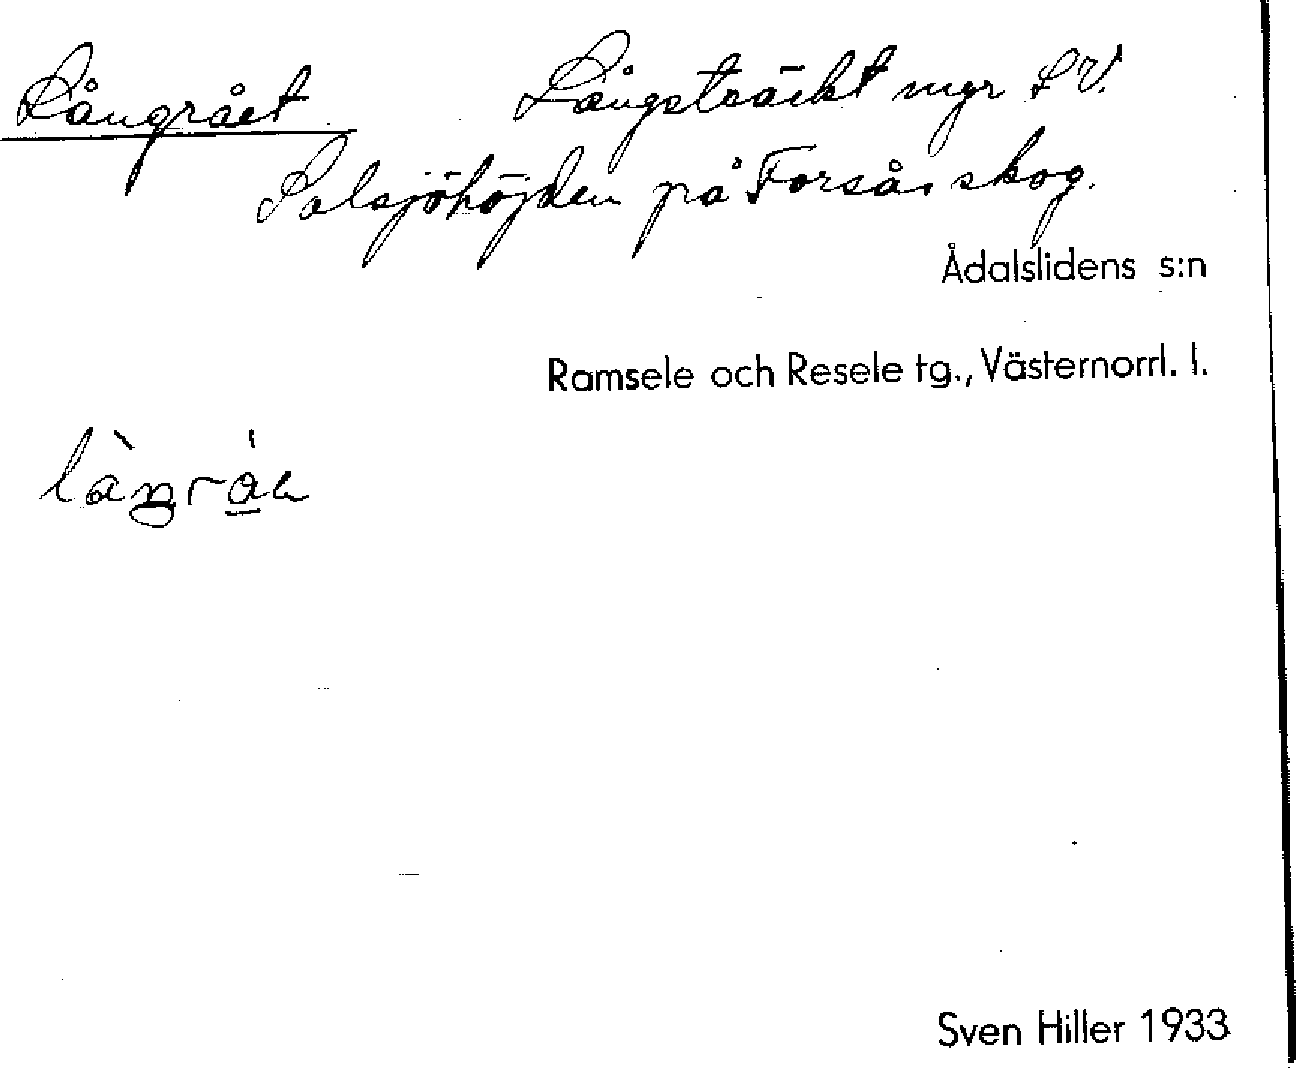 Långrået Långsträckt myr S V.
Salsjöhöjden på Forsås skog.
Ådalslidens s:n
Ramsele och Resele tg., Västernorrl. l.
Sven Hiller 1933